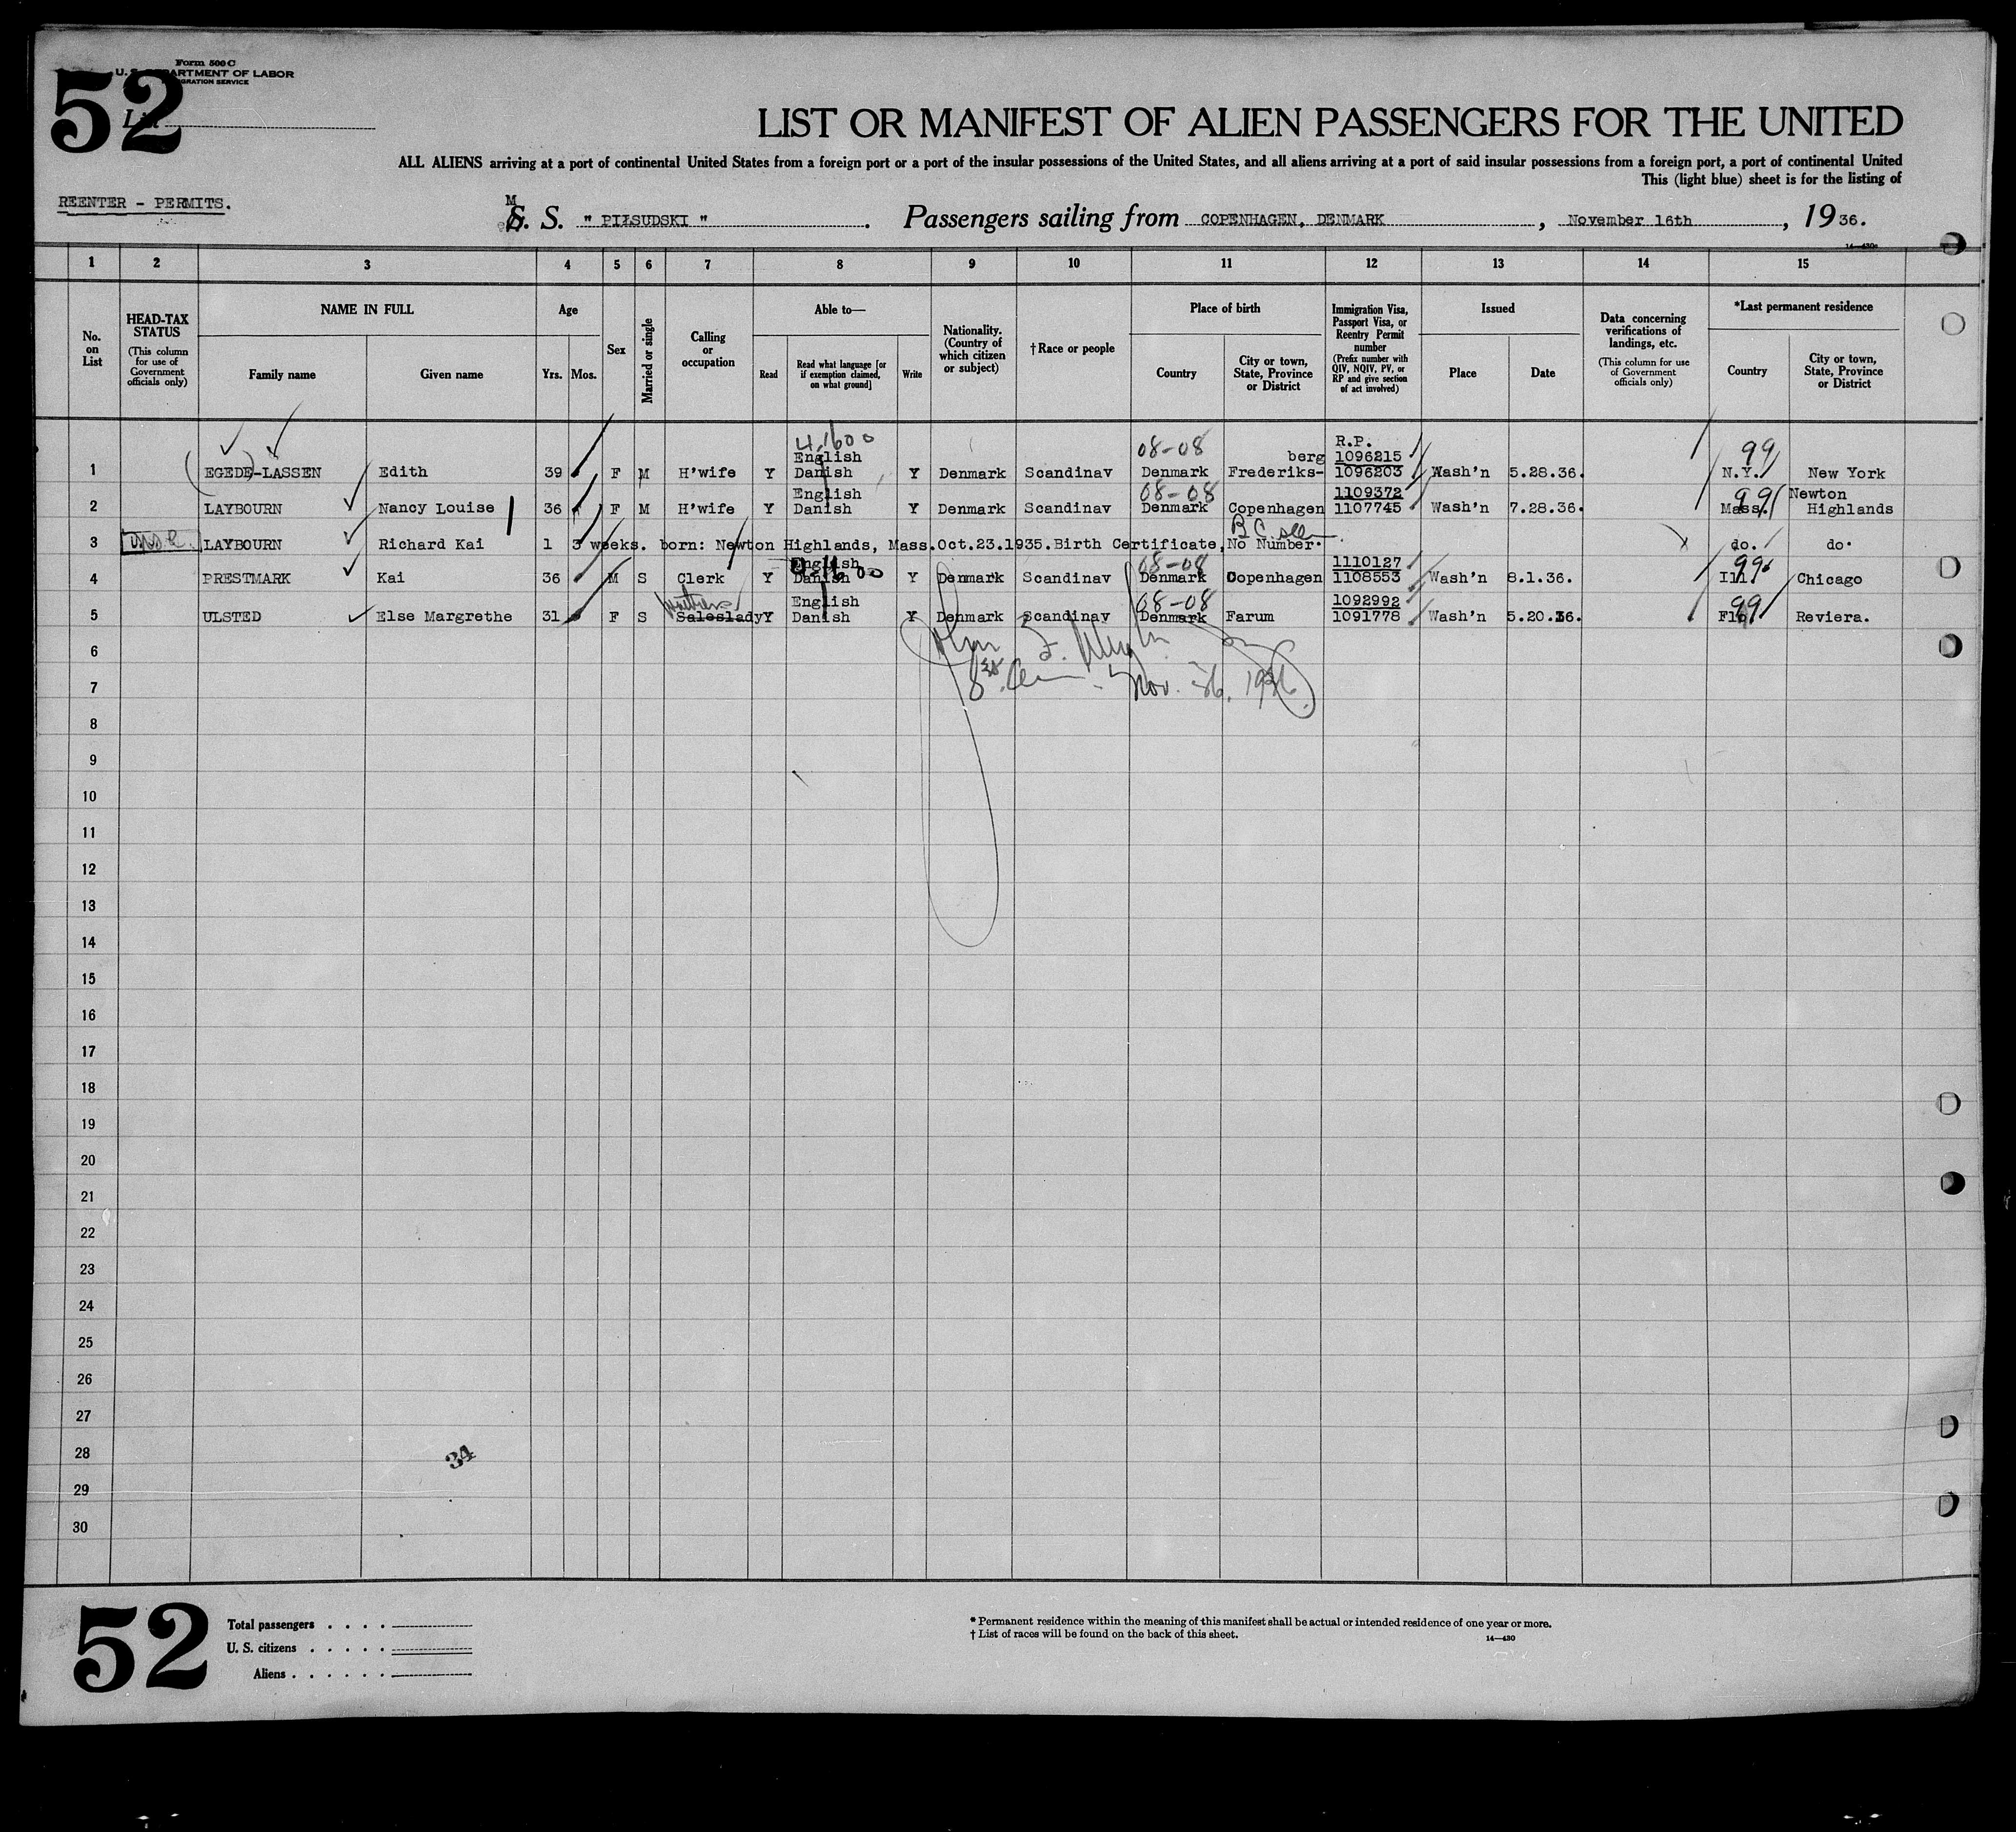 52
Form 500 C
U. S. DEPARTMENT OF LABOR
IMMIGRATION SERVICE
List
LIST OR MANIFEST OF ALIEN PASSENGERS FOR THE UNITED
ALL ALIENS arriving at a port of continental United States from a foreign port or a port of the insular possessions of the United States, and all aliens arriving at a port of said insular possessions from a foreign port, a port of continental United
This (light blue) sheet is for the listing of
REENTER - PERMITS.
M
S. S. " PIŁSUDSKI " . Passengers sailing from COPENHAGEN, DENMARK , November 16th , 19 36.
14—430
1 2 3 4 5 6 7 8 9 10 11 12 13 14 15
No. on List
HEAD-TAX STATUS
(This column for use of Government officials only)
NAME IN FULL
Family name Given name
Age
Yrs. Mos.
Sex
Married or single
Calling or occupation
Able to—
Read
Read what language [or if exemption claimed, on what ground]
Write
Nationality. (Country of which citizen or subject)
†Race or people
Place of birth
Country
City or town, State, Province or District
Immigration Visa, Passport Visa, or Reentry Permit number
(Prefix number with QIV, NQIV, PV, or RP and give section of act involved)
Issued
Place Date
Data concerning verifications of landings, etc.
(This column for use of Government officials only)
*Last permanent residence
Country
City or town, State, Province or District
4.1600 08-08 R.P. 99
English berg 1096215
1 EGEDE-LASSEN Edith 39 F M H'wife Y Danish Y Denmark Scandinav Denmark Frederiks- 1096203 Wash'n 5.28.36. N.Y. New York
English 08-08 1109372 99 Newton
2 LAYBOURN Nancy Louise 36 F M H'wife Y Danish Y Denmark Scandinav Denmark Copenhagen 1107745 Wash'n 7.28.36. Mass. Highlands
B C seen
3 LAYBOURN Richard Kai 1 3 weeks. born: Newton Highlands, Mass. Oct.23.1935. Birth Certificate, No Number. do. do.
English 08-08 1110127 99
4 PRESTMARK Kai 36 M S Clerk Y Danish Y Denmark Scandinav Denmark Copenhagen 1108553 Wash'n 8.1.36. Ill. Chicago
waitress English 08-08 1092992 99
5 ULSTED Else Margrethe 31 F S Saleslady Y Danish Y Denmark Scandinav Denmark Farum 1091778 Wash'n 5.20.36. Fla. Reviera.
6
Nov. 26, 1936
7
8
9
10
11
12
13
14
15
16
17
18
19
20
21
22
23
24
25
26
27
28
34
29
30
52
Total passengers . . . .
U. S. citizens . . . . .
Aliens . . . . . .
* Permanent residence within the meaning of this manifest shall be actual or intended residence of one year or more.
† List of races will be found on the back of this sheet.
14—430